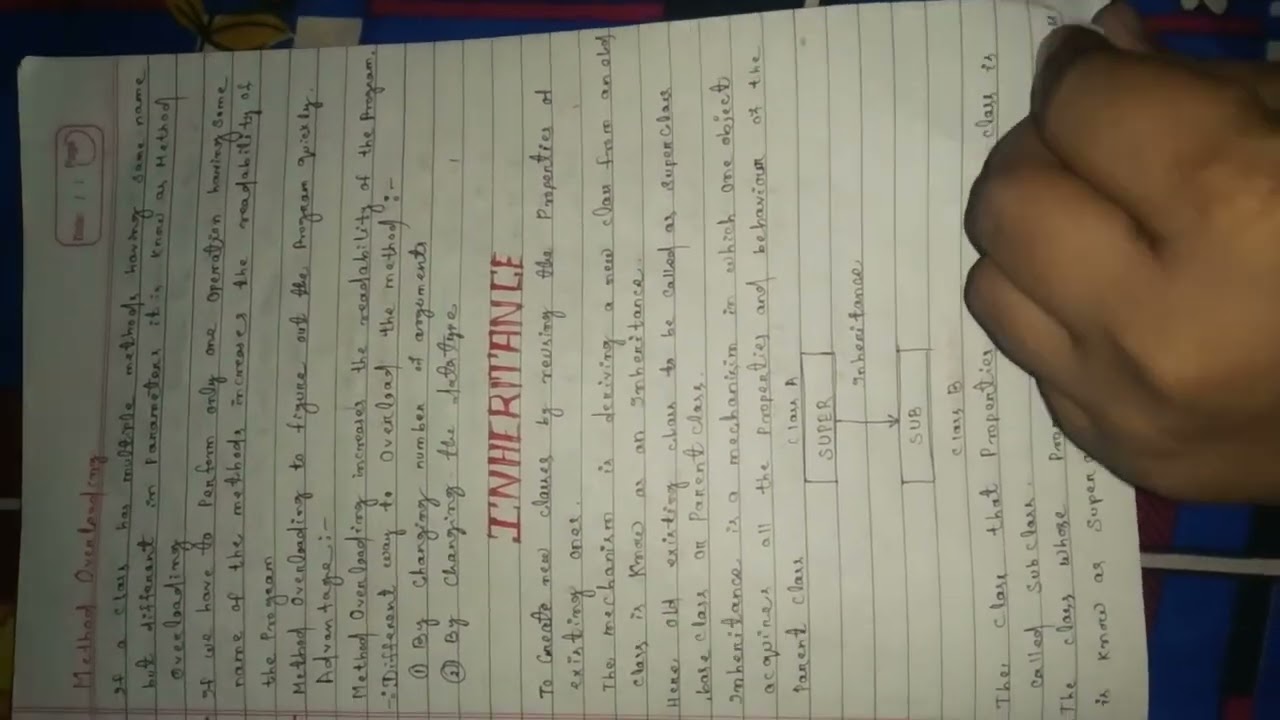 Date: / / Page
Method Overloading
If a class has multiple methods having same name
but different in Parameters it is Know as Method
Overloading
If we have to Perform only one operation having same
name of the methods increases the readability of
the Program
Method Overloading to figure out the Program quickly.
Advantage :-
Method Overloading increases the readability of the Program.
-: Different way to overload the method :-
① By changing number of arguments
② By changing the data type
INHERITANCE
To Create new classes by reusing the Properties of
existing ones.
The mechanism is deriving a new class from an old
class is Know as an Inheritance.
Here, old existing class to be called as superclass
,base class or Parent class.
Inheritance is a mechanisim in which one object
acquires all the Properties and behaviour of the
Parent class
Class A
SUPER
Inheritance
SUB
Class B
The class that Properties class is
Called Subclass.
The class whose
is know as Super